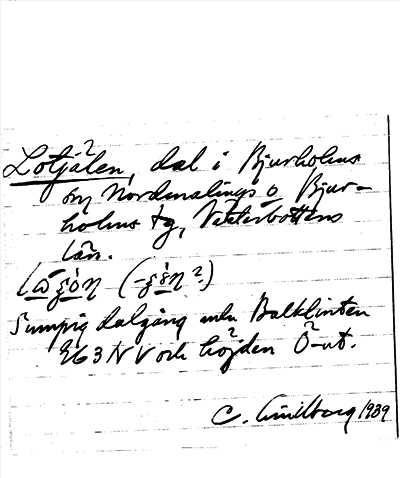 Lotjålen, dal i Bjurholms
by Nordmalings o. Bjur-
holms tg, Västerbottens
län.
Sumpig dalgång mln Balklinten
363 NV och höjden O-ut.
C. 1939